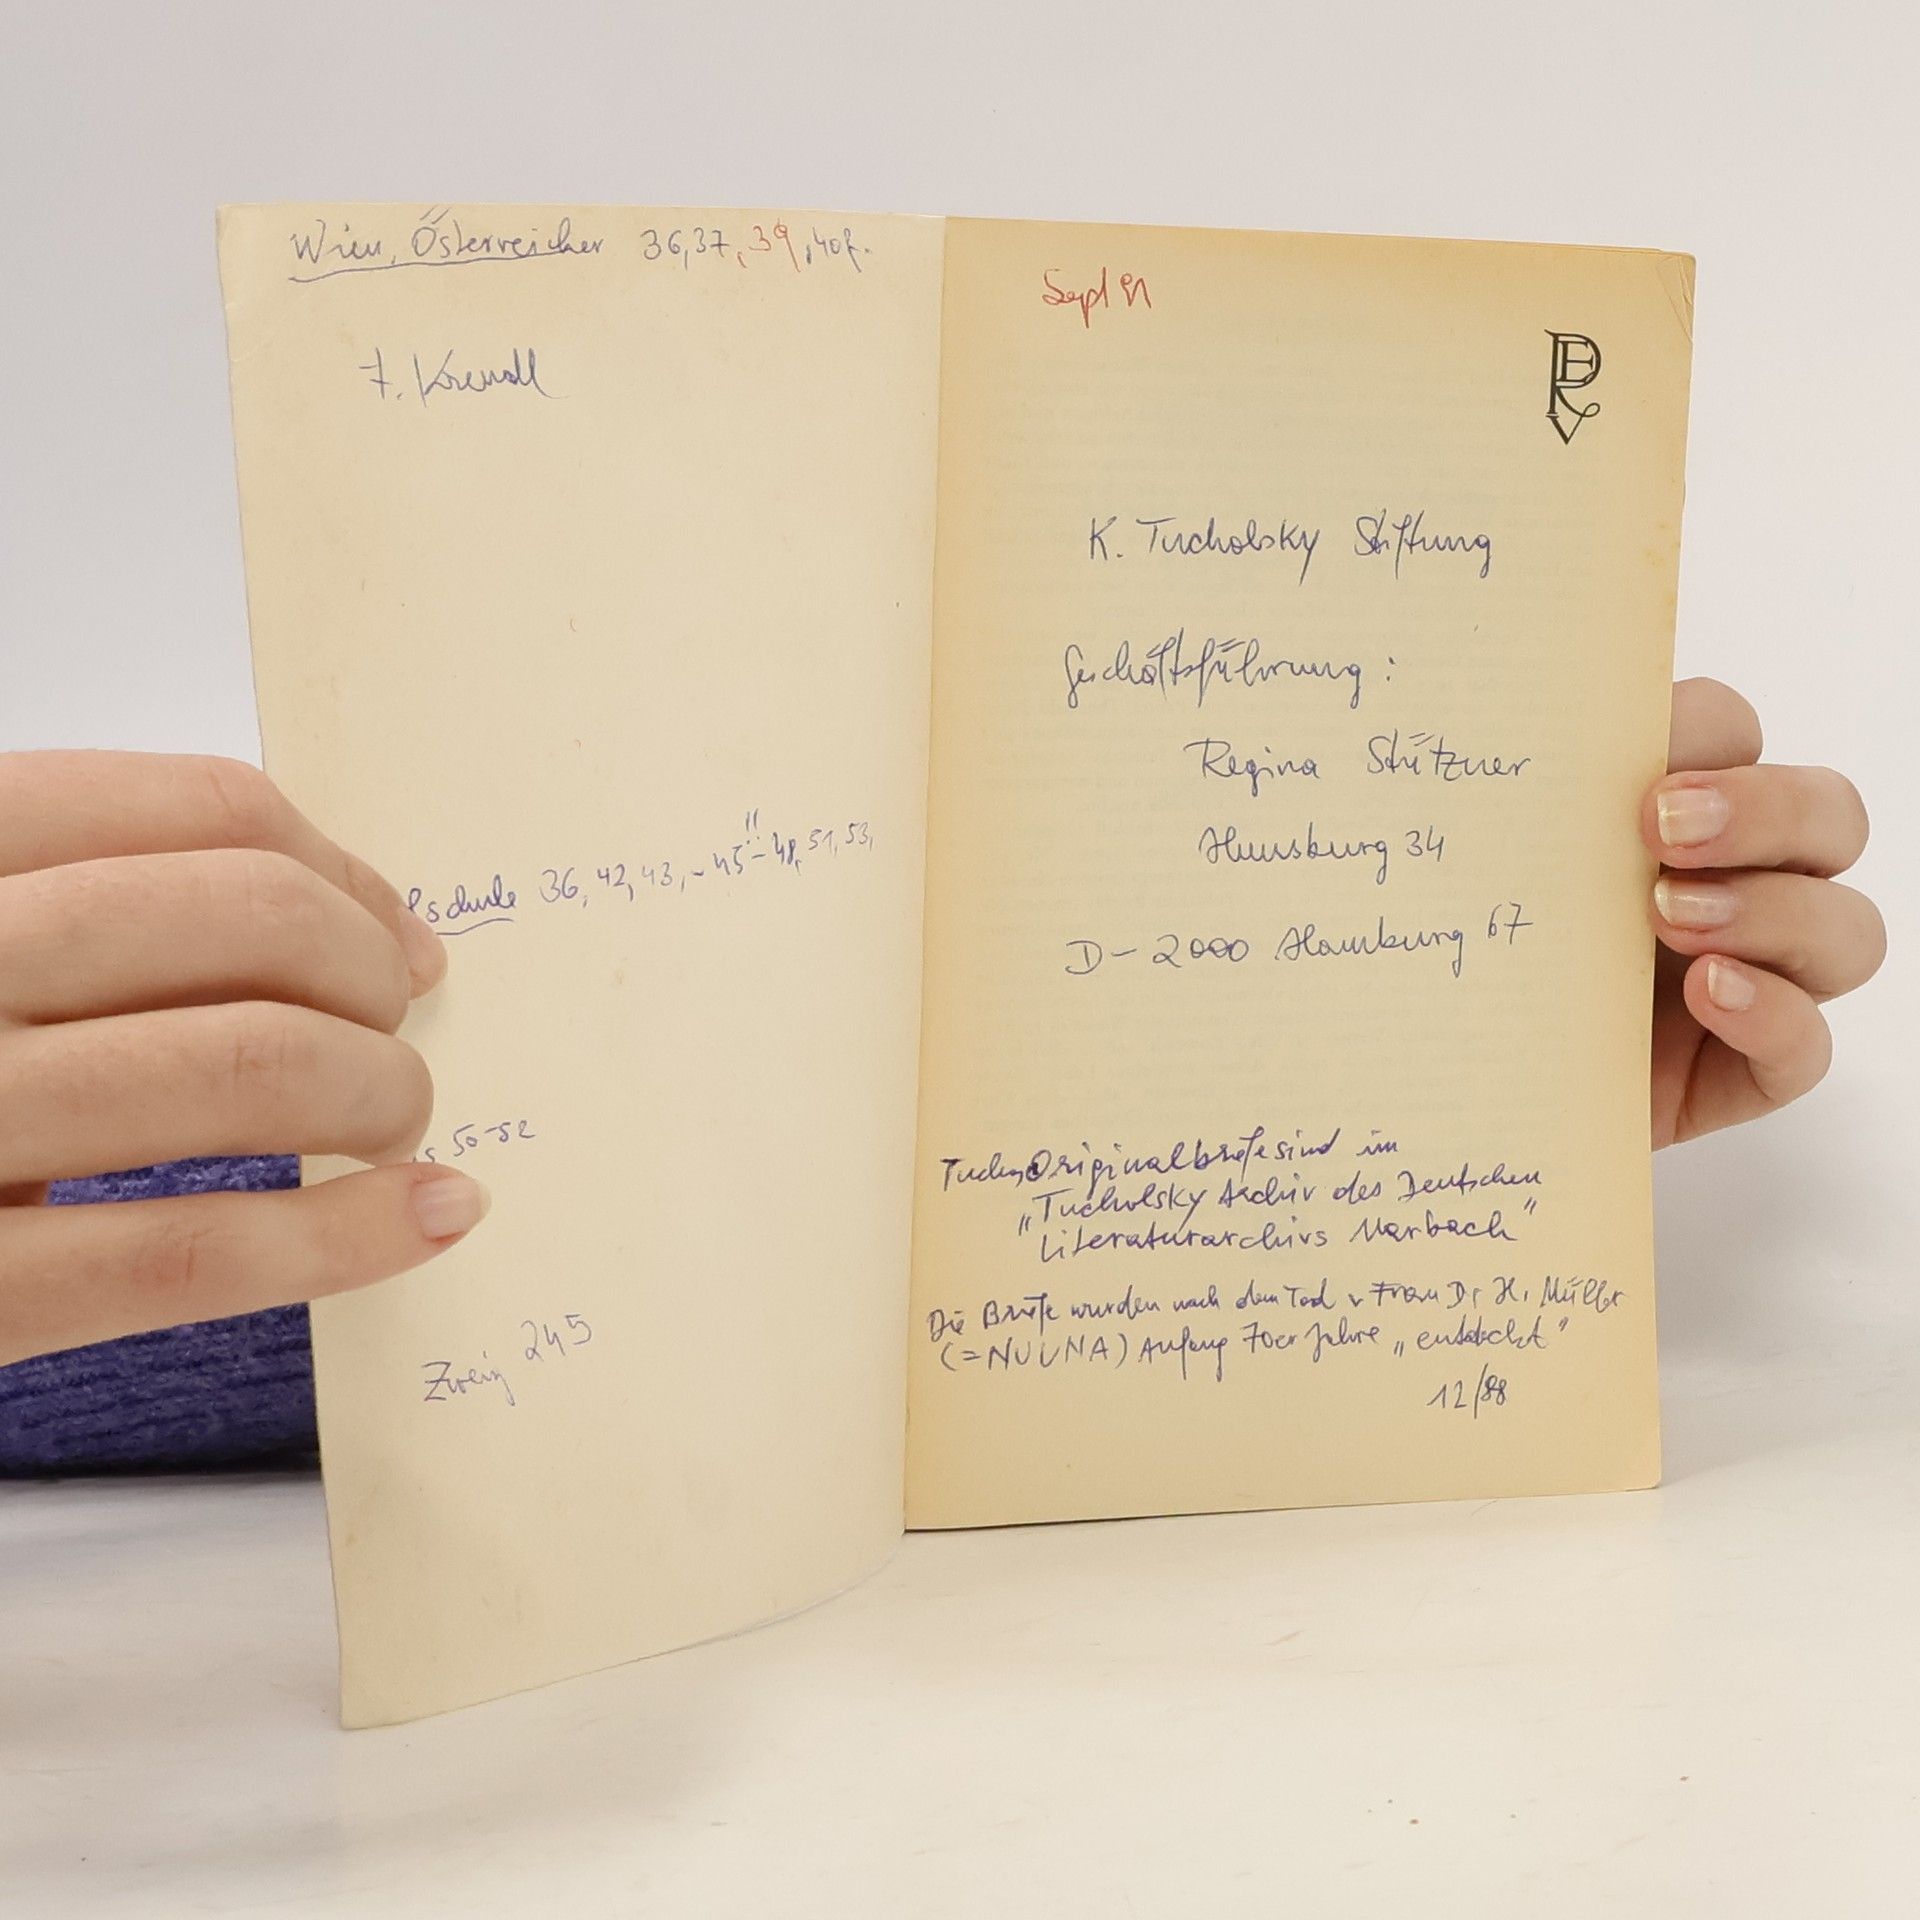 Wien, Österreicher 36, 37, 39, 40f.
36, 42, 43, - 45 - 48, 51, 53,
50-52
Zweig 245
Sept 91
K. Tucholsky Stiftung
Geschäftsführung :
Regina Stützner
34
D- 2000 Hamburg 67
Originalbriefe sind im
„Tucholsky Archiv des Deutschen
Literaturarchivs Marbach"
Die Briefe wurden nach dem Tod v Frau Dr H. Müller
(=NUUNA) Anfang 70er Jahre „entdeckt"
12/88